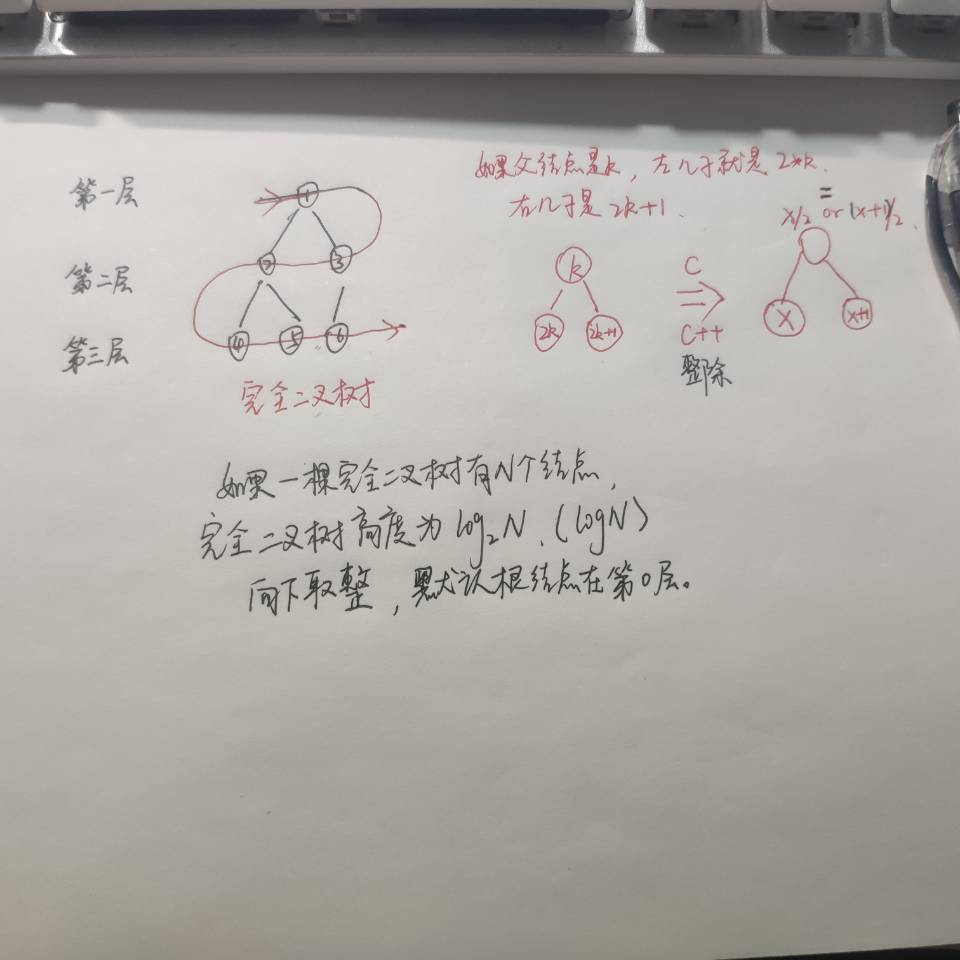 第一层
第二层
第三层
1
2
3
4
5
6
完全二叉树
如果父结点是k，左儿子就是2*k.
右儿子是2k+1.
k
2k
2k+1
C
C++
整除
=
x/2 or (x+1)/2.
x
x+1
如果一棵完全二叉树有N个结点,
完全二叉树高度为log₂N.(logN)
向下取整，默认根结点在第0层。